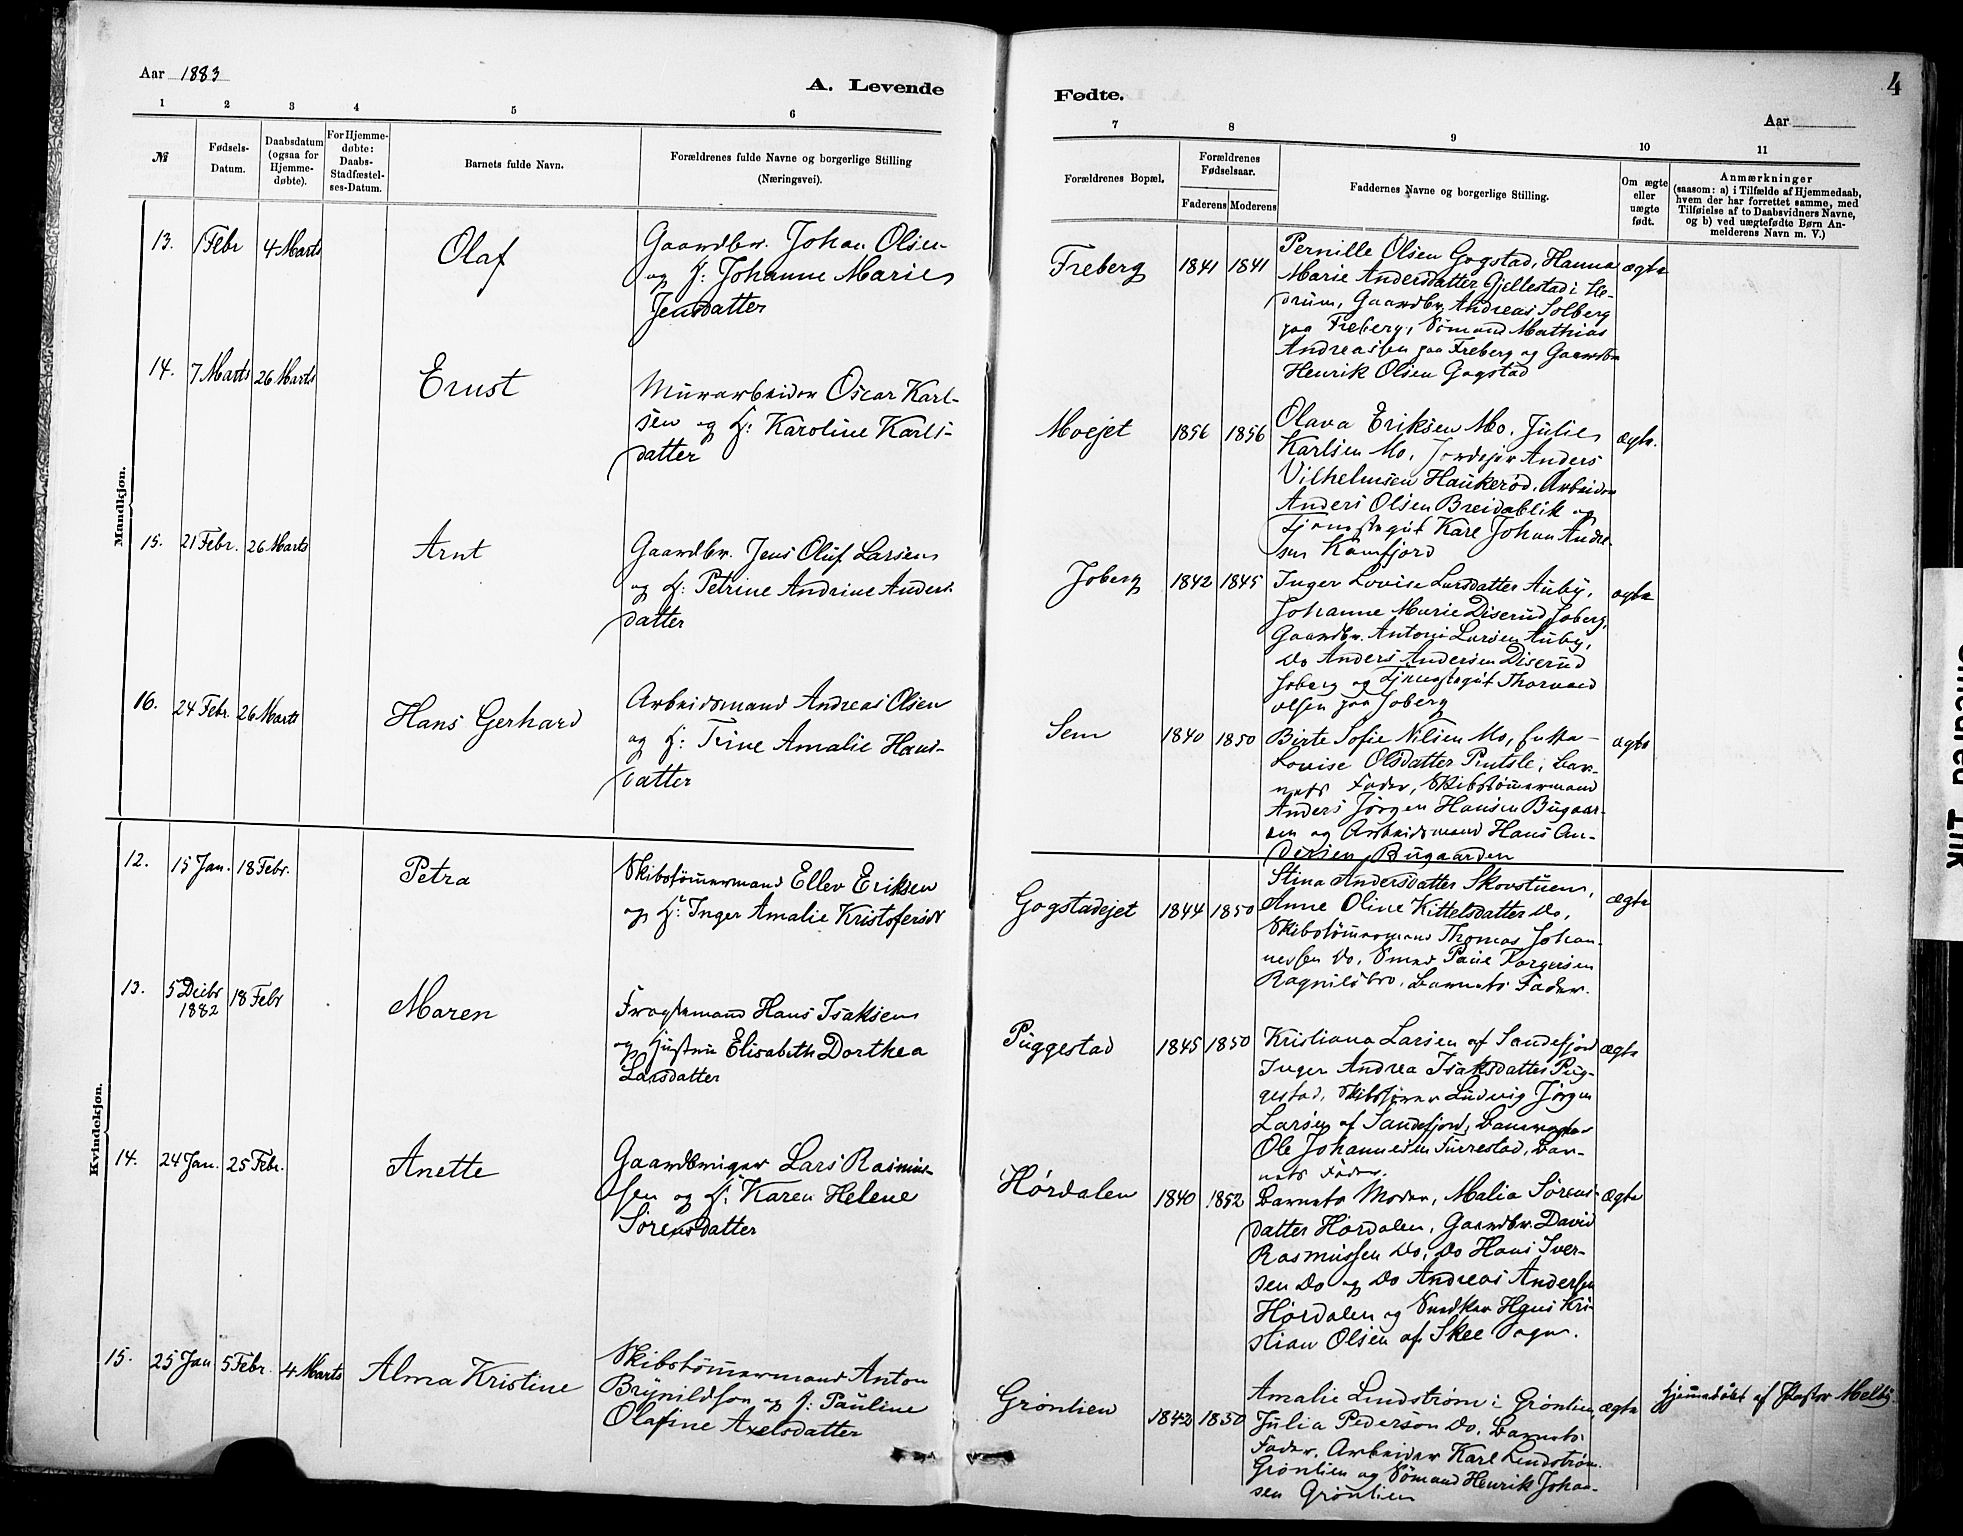 Aar 1883
A. Levende
1 2 3 4 5 6
№
Fødsels-
Datum.
Daabsdatum
(ogsaa for
Hjemme-
døbte).
For Hjemme-
døbte:
Daabs-
Stadfæstel-
ses-Datum.
Barnets fulde Navn.
Forældrenes fulde Navne og borgerlige Stilling
(Næringsvei).
Mandkjøn.
13. 1 Febr 4 Marts Olaf Gaardbr. Johan Olsen
og H: Johanne Marie
Jensdatter
14. 7 Marts 26 Marts Ernst Murarbeider Oscar Karl-
sen og H: Karoline Karls-
datter
15. 21 Febr. 26 Marts Arnt Gaardbr. Jens Oluf Larsen
og H: Petrine Andrine Anders-
datter
16. 24 Febr. 26 Marts Hans Gerhard Arbeidsmand Andreas Olsen
og H: Trine Amalie Hans-
datter
Kvindekjøn.
12. 15 Jan. 18 Febr. Petra Skibstømmermand Ellev Eriksen
og H: Inger Amalie Kristofersdr
13. 5 Decbr 1882 18 Febr Maren Fragtemand Hans Isaksen
og Hustru Elisabeth Dorthea
Larsdatter
14. 24 Jan. 25 Febr. Anette Gaardbruger Lars Rasmus-
sen og H: Karen Helene
Sørensdatter
15. 25 Jan 5 Febr. 4 Marts Alma Kristine Skibstømmermand Anton
Brynildsen og H: Pauline
Olafine Axelsdatter
4
Fødte.
Aar
7 8 9 10 11
Forældrenes Bopæl.
Forældrenes
Fødselsaar.
Faderens Moderens
Faddernes Navne og borgerlige Stilling.
Om ægte
eller
uægte
født.
Anmærkninger
(saasom: a) i Tilfælde af Hjemmedaab,
hvem der har forrettet samme, med
Tilføielse af to Daabsvidners Navne,
og b) ved uægtefødte Børn An-
melderens Navn m. V.)
Freberg 1841 1841 Pernille Olsen Gogstad, Hanna ægte
Marie Andersdatter Gjellestad i He-
drum, Gaardbr. Andreas Solberg
paa Freberg, Sømand Mathias
Andreassen paa Freberg og Gaardbr
Henrik Olsen Gogstad
Moejet 1856 1856 Olava Eriksen Mo, Julie ægte.
Karlsen Mo, Jordejer Anders
Vilhelmsen Haukerød, Arbeider
Anders Olsen Breidablik og
Tjenestegut Karl Johan Andre-
sen Kamfjord
Joberg 1842 1845 Inger Lovise Larsdatter Auby, ægte
Johanne Marie Diserud Joberg,
Gaardbr. Anton Larsen Auby,
Do Anders Andersen Diserud
Joberg og Tjenestegut Thorvald
Olsen paa Joberg
Sem 1840 1850 Birte Sofie Nilsen Mo, Jutta ægte
Lovise Olsdatter Pindsle, Bar-
nets Fader, Skibstømmermand
Anders Jørgen Hansen Bugaar-
den og Arbeidsmand Hans An-
dersen Bugaarden
Gogstadejet 1844 1850 Stina Andersdatter Skovstuen, ægte
Anne Oline Kittelsdatter Do,
Skibstømmermand Thomas Johan-
nessen Do, Smed Paul Torgersen
Ragnilsbro, Barnets Fader.
Puggestad 1845 1850 Kristiana Larsen af Sandefjord ægte
Inger Andrea Isaksdatter Pug-
gestad, Skibsfører Ludvig Jørgen
Larsen af Sandefjord,
Ole Johannesen Furrestad, Bar-
nets Fader.
Hørdalen 1840 1852 Barnets Moder, Malia Sørens- ægte
datter Hørdalen, Gaardbr. David
Rasmussen Do, Do Hans Iver-
sen Do og Do Andreas Andersen
Hørdalen og Snedker Hans Kri-
stian Olsen af Skee Sogn.
Grønlien 1842 1850 Amalie Lindstrøm i Grønlien, ægte Hjemmedøbt af Pastor Melby.
Julia Pederson Do, Barnets
Fader, Arbeider Karl Lindstrøm
Grønlien og Sømand Henrik Johan-
sen Grønlien